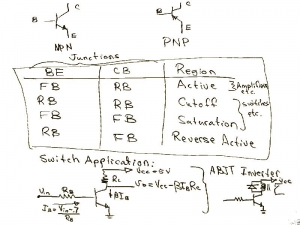 C
B
E
NPN
C
B
E
PNP
Junctions
BE CB Region
FB RB Active } Amplifiers etc.
RB RB Cutoff } switches etc.
FB FB Saturation
RB FB Reverse Active
Switch Application:
Vcc = 5V
RC
Vin RB
Vo = Vcc - βIBRC
↓βIB
IB = Vin - .7 / RB
A BJT Inverter
Vcc